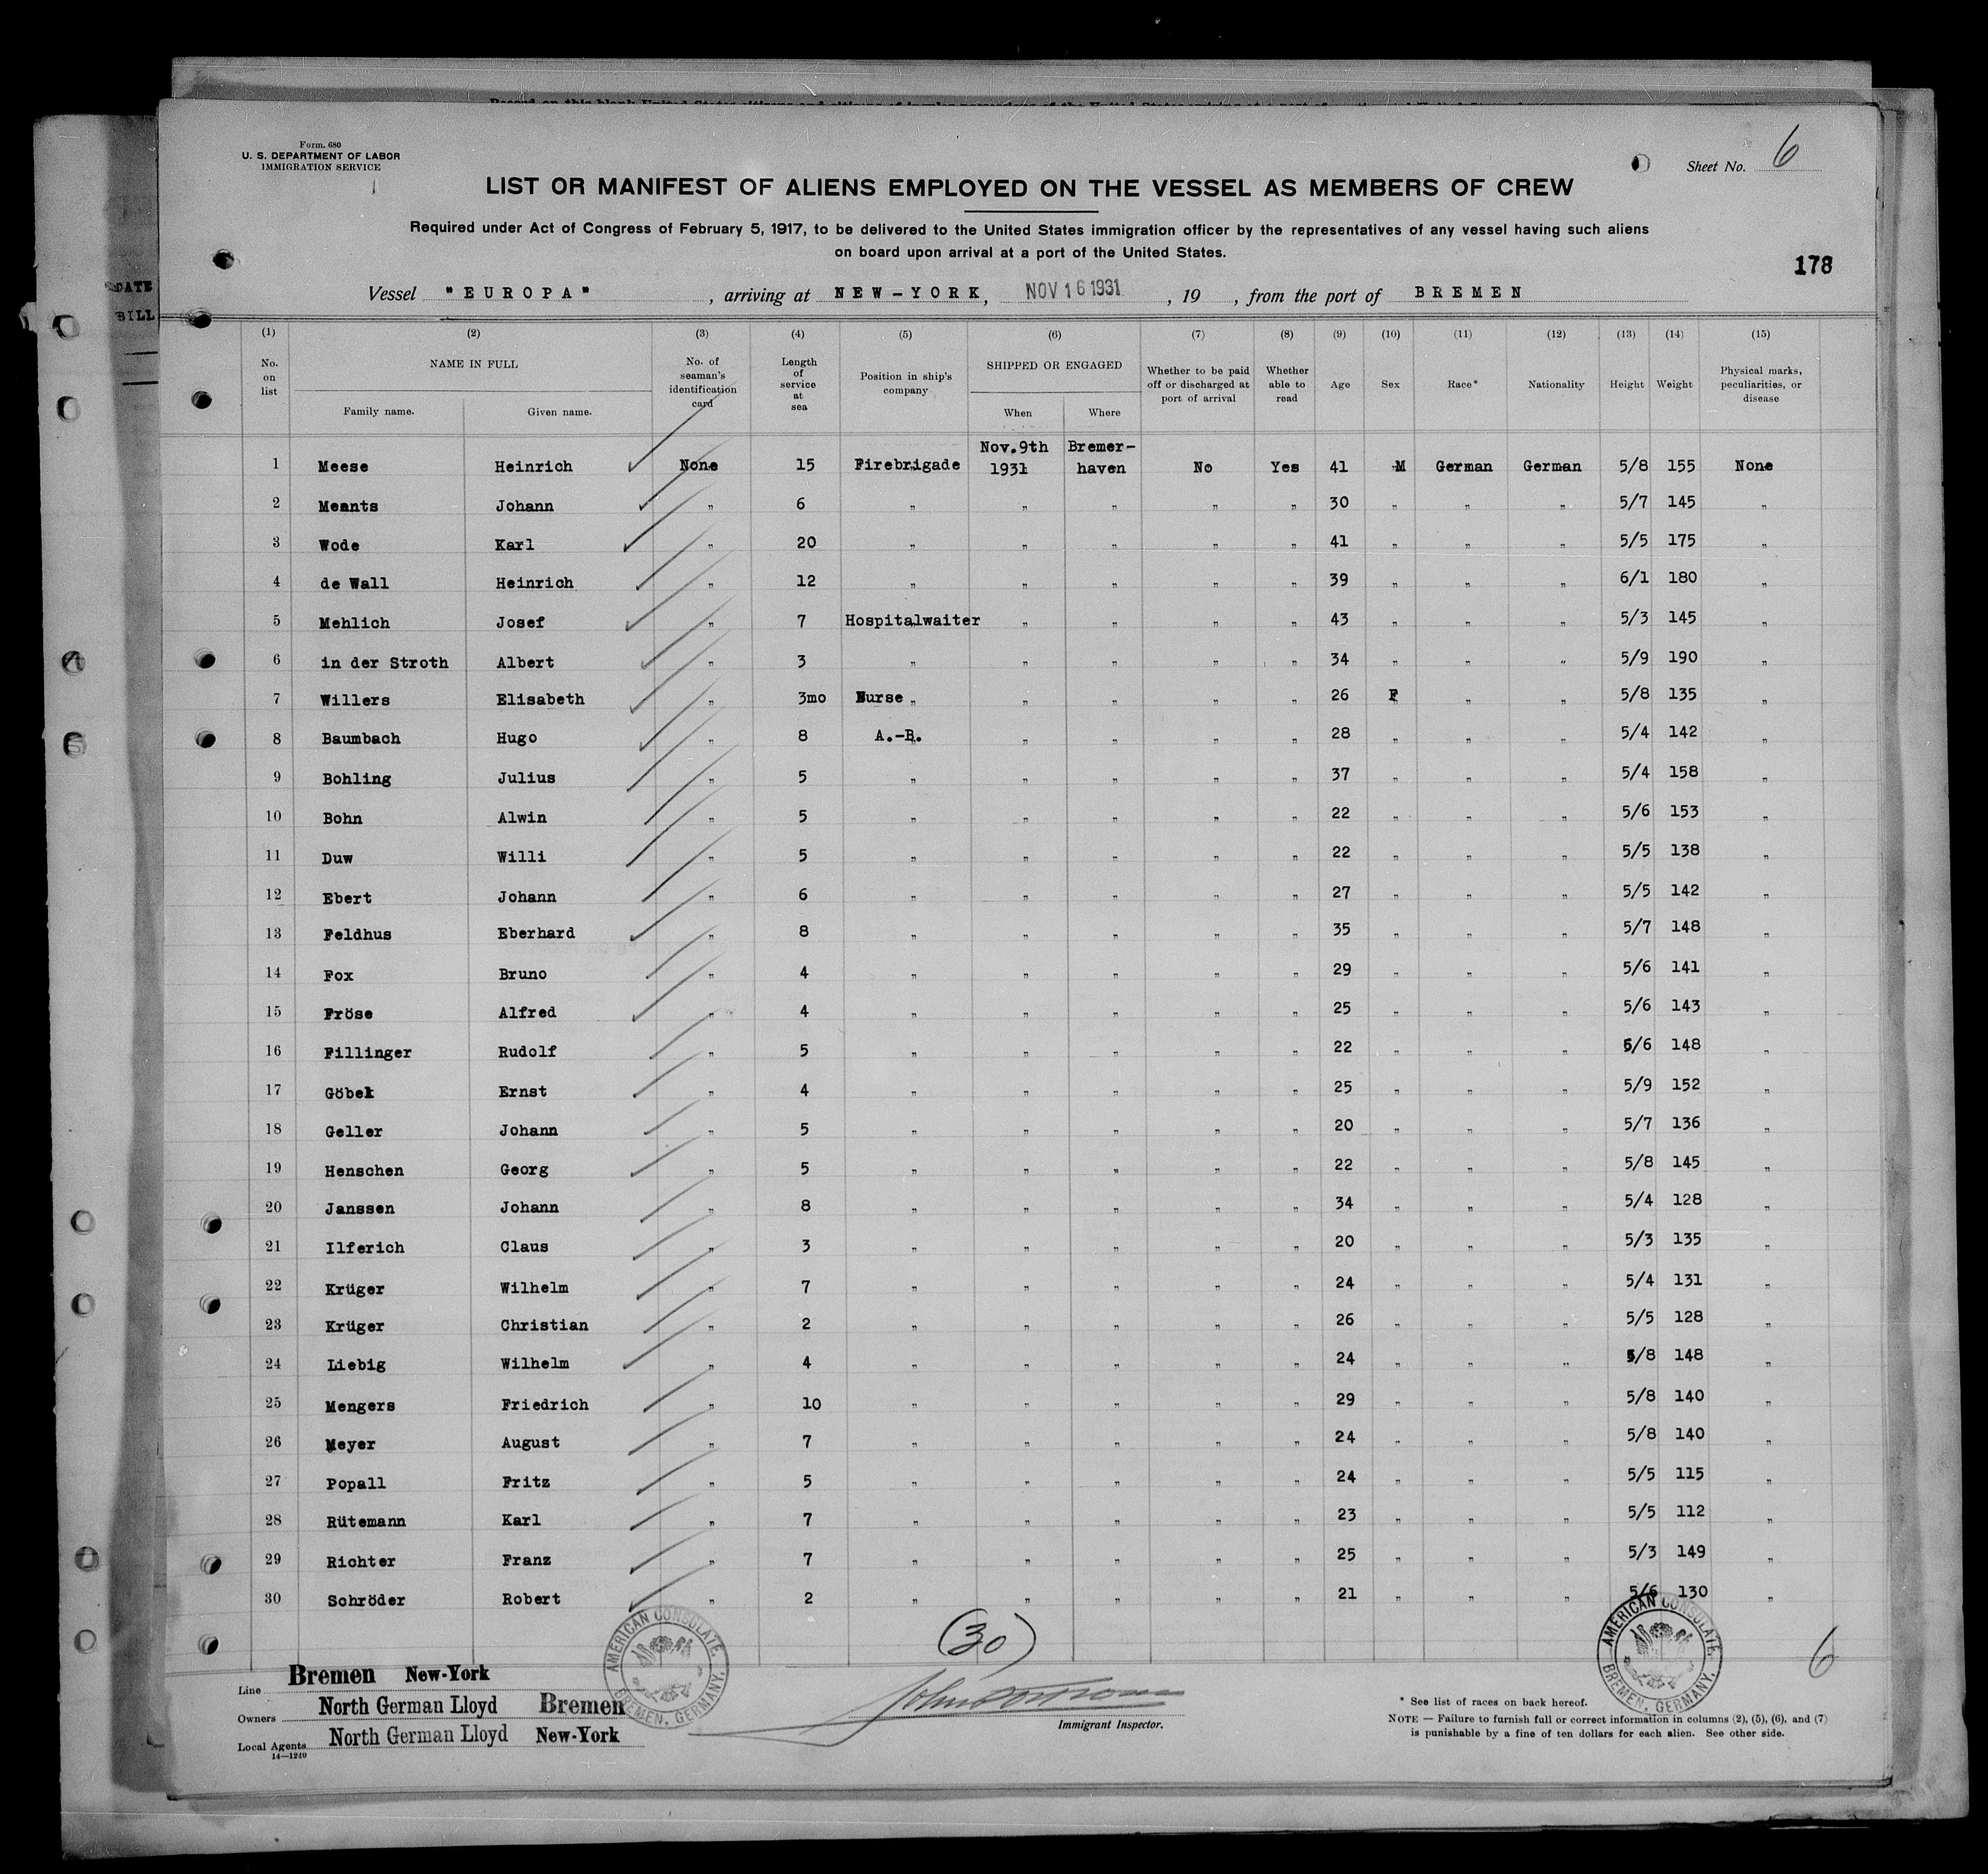 Form. 680
U. S. DEPARTMENT OF LABOR
IMMIGRATION SERVICE
Sheet No. 6
LIST OR MANIFEST OF ALIENS EMPLOYED ON THE VESSEL AS MEMBERS OF CREW
Required under Act of Congress of February 5, 1917, to be delivered to the United States immigration officer by the representatives of any vessel having such aliens
on board upon arrival at a port of the United States.
178
DATE
BILL
Vessel "EUROPA", arriving at NEW-YORK, NOV 16 1931, 19 , from the port of BREMEN
(1) (2) (3) (4) (5) (6) (7) (8) (9) (10) (11) (12) (13) (14) (15)
No. on list
NAME IN FULL
Family name. Given name.
No. of seaman's identification card
Length of service at sea
Position in ship's company
SHIPPED OR ENGAGED
When Where
Whether to be paid off or discharged at port of arrival
Whether able to read
Age
Sex
Race*
Nationality
Height
Weight
Physical marks, peculiarities, or disease
1 Meese Heinrich None 15 Firebrigade Nov.9th 1931 Bremerhaven No Yes 41 M German German 5/8 155 None
2 Meants Johann " 6 " " " " " 30 " " " 5/7 145 "
3 Wode Karl " 20 " " " " " 41 " " " 5/5 175 "
4 de Wall Heinrich " 12 " " " " " 39 " " " 6/1 180 "
5 Mehlich Josef " 7 Hospitalwaiter " " " " 43 " " " 5/3 145 "
6 in der Stroth Albert " 3 " " " " " 34 " " " 5/9 190 "
7 Willers Elisabeth " 3mo Nurse " " " " 26 F " " 5/8 135 "
8 Baumbach Hugo " 8 A.-B. " " " " 28 " " " 5/4 142 "
9 Bohling Julius " 5 " " " " " 37 " " " 5/4 158 "
10 Bohn Alwin " 5 " " " " " 22 " " " 5/6 153 "
11 Duw Willi " 5 " " " " " 22 " " " 5/5 138 "
12 Ebert Johann " 6 " " " " " 27 " " " 5/5 142 "
13 Feldhus Eberhard " 8 " " " " " 35 " " " 5/7 148 "
14 Fox Bruno " 4 " " " " " 29 " " " 5/6 141 "
15 Fröse Alfred " 4 " " " " " 25 " " " 5/6 143 "
16 Fillinger Rudolf " 5 " " " " " 22 " " " 5/6 148 "
17 Göbel Ernst " 4 " " " " " 25 " " " 5/9 152 "
18 Geller Johann " 5 " " " " " 20 " " " 5/7 136 "
19 Henschen Georg " 5 " " " " " 22 " " " 5/8 145 "
20 Janssen Johann " 8 " " " " " 34 " " " 5/4 128 "
21 Ilferich Claus " 3 " " " " " 20 " " " 5/3 135 "
22 Krüger Wilhelm " 7 " " " " " 24 " " " 5/4 131 "
23 Krüger Christian " 2 " " " " " 26 " " " 5/5 128 "
24 Liebig Wilhelm " 4 " " " " " 24 " " " 5/8 148 "
25 Mengers Friedrich " 10 " " " " " 29 " " " 5/8 140 "
26 Meyer August " 7 " " " " " 24 " " " 5/8 140 "
27 Popall Fritz " 5 " " " " " 24 " " " 5/5 115 "
28 Rütemann Karl " 7 " " " " " 23 " " " 5/5 112 "
29 Richter Franz " 7 " " " " " 25 " " " 5/3 149 "
30 Schröder Robert " 2 " " " " " 21 " " " 5/6 130 "
(30)
6
AMERICAN CONSULATE, BREMEN, GERMANY.
AMERICAN CONSULATE, BREMEN, GERMANY.
Line Bremen New-York
Owners North German Lloyd Bremen
Local Agents North German Lloyd New-York
14—1240
Immigrant Inspector.
* See list of races on back hereof.
NOTE — Failure to furnish full or correct information in columns (2), (5), (6), and (7)
is punishable by a fine of ten dollars for each alien. See other side.